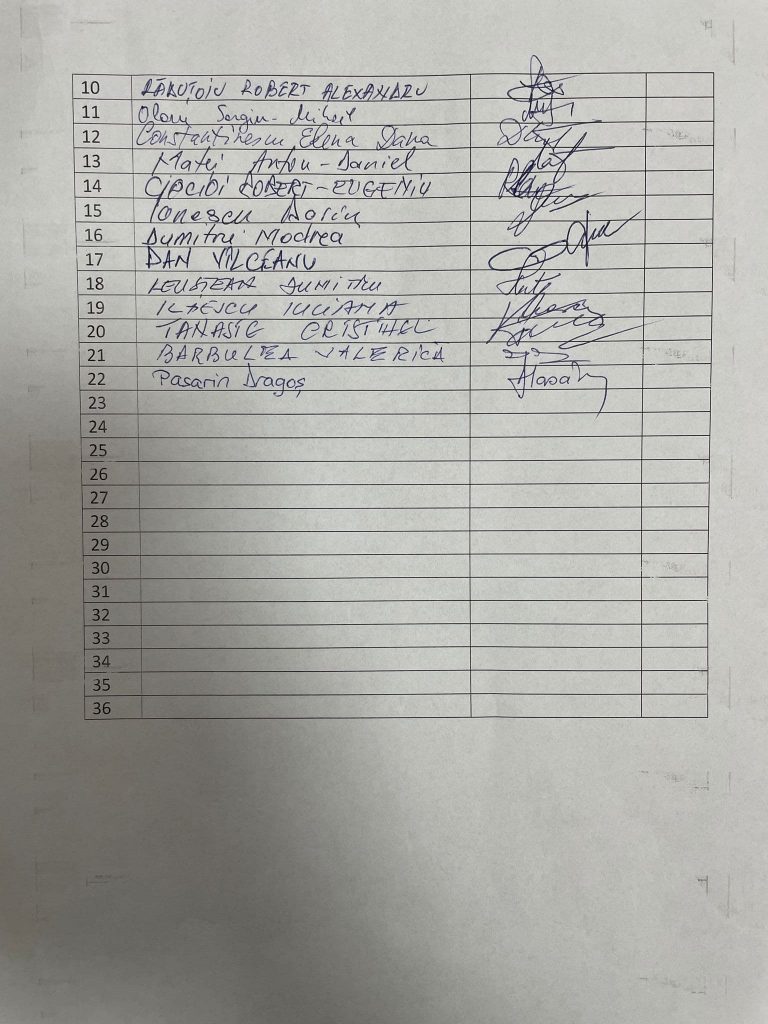 10 RĂRUȚOIU ROBERT ALEXANDRU
11 Sorgiu-Mihail
12 Constantinescu Elena Dana
13 Matei Anton-Daniel
14 ROBERT-EUGENIU
15 Ionescu Dorin
16 Dumitru Modrea
17 DAN VÎLCEANU
18 LEUȘTEAN DUMITRU
19 ILIESCU IULIANA
20 TANASIE CRISTINEL
21 BĂRBULEA VALERICĂ
22 Pasarin Dragoș
23
24
25
26
27
28
29
30
31
32
33
34
35
36